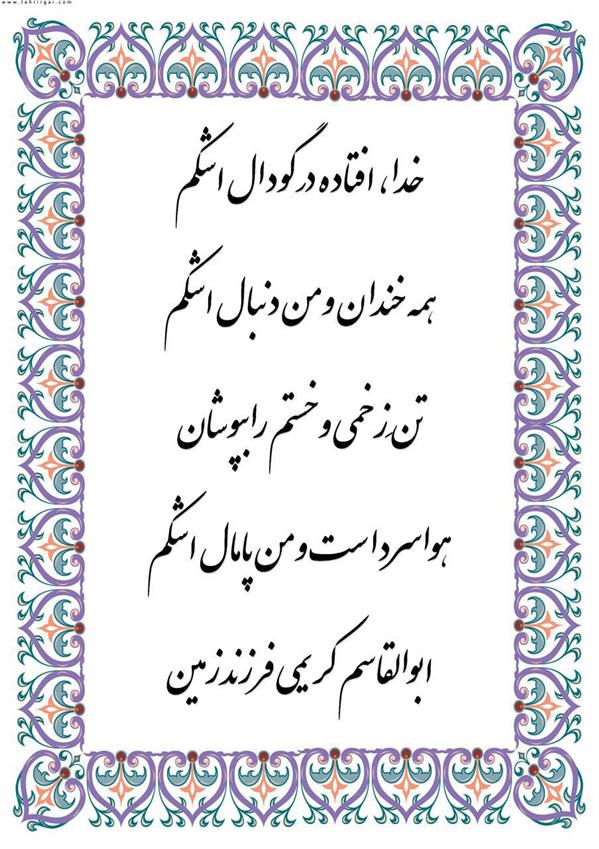 www.tahrirgar.com
خدا، افتاده در گودال اشکم
همه خندان و من دنبال اشکم
تنِ زخمی و خستم را بپوشان
هوا سرد است و من پامال اشکم
ابوالقاسم کریمی فرزند زمین